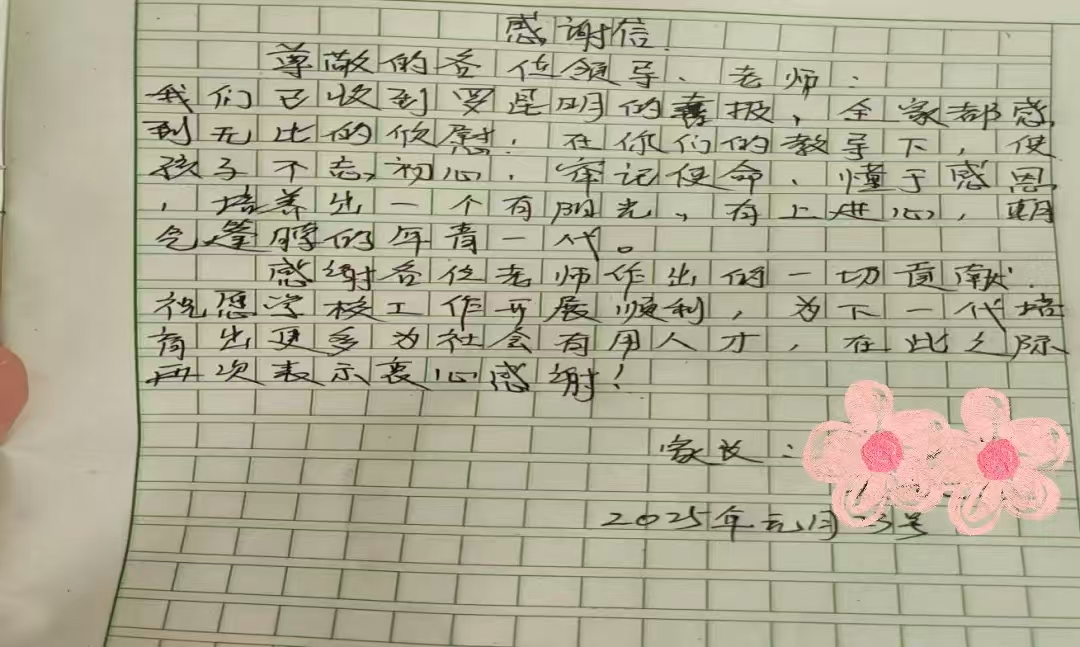 感谢信
尊敬的各位领导、老师：
我们已收到罗昆明的喜报，全家都感
到无比的欣慰！在你们的教导下，使
孩子不忘初心、牢记使命、懂于感恩
，培养出一个有阳光，有上进心，朝
气蓬脖的年青一代。
感谢各位老师作出的一切贡献！
祝愿学校工作开展顺利，为下一代培
育出更多为社会有用人才，在此之际
再次表示衷心感谢！
家长：
2025年元月23号